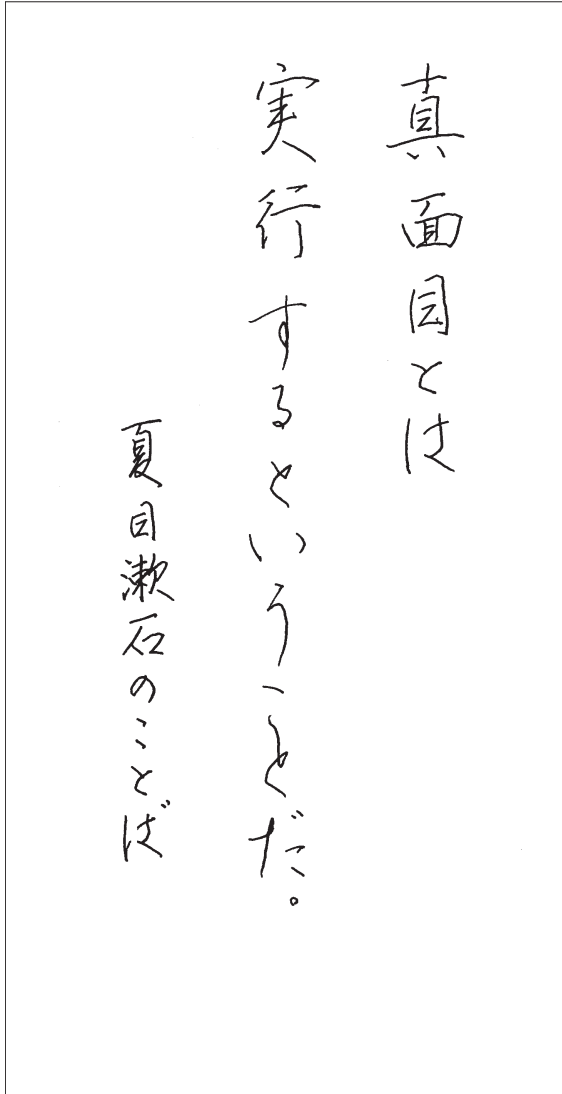 真面目とは
実行するということだ。
夏目漱石のことば